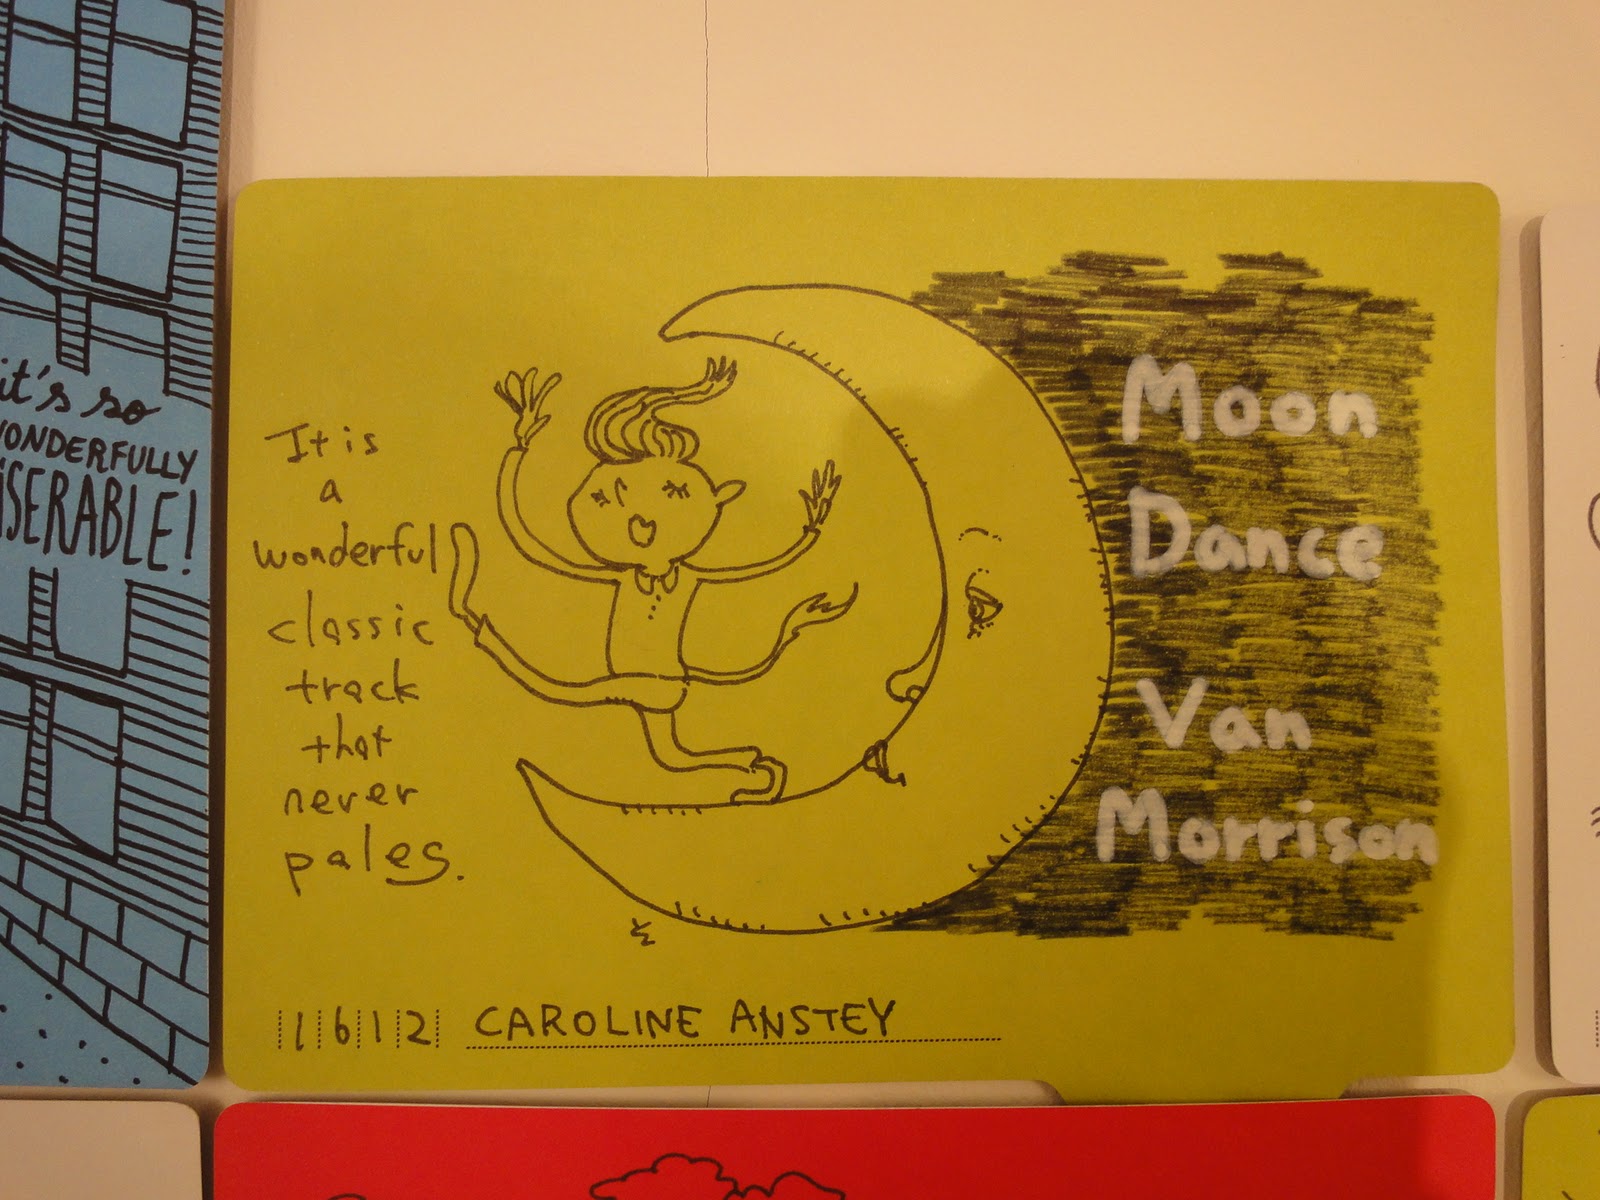 it's so
WONDERFULLY
MISERABLE!
It is
a
wonderful
classic
track
that
never
pales.
Moon
Dance
Van
Morrison
1612 CAROLINE ANSTEY